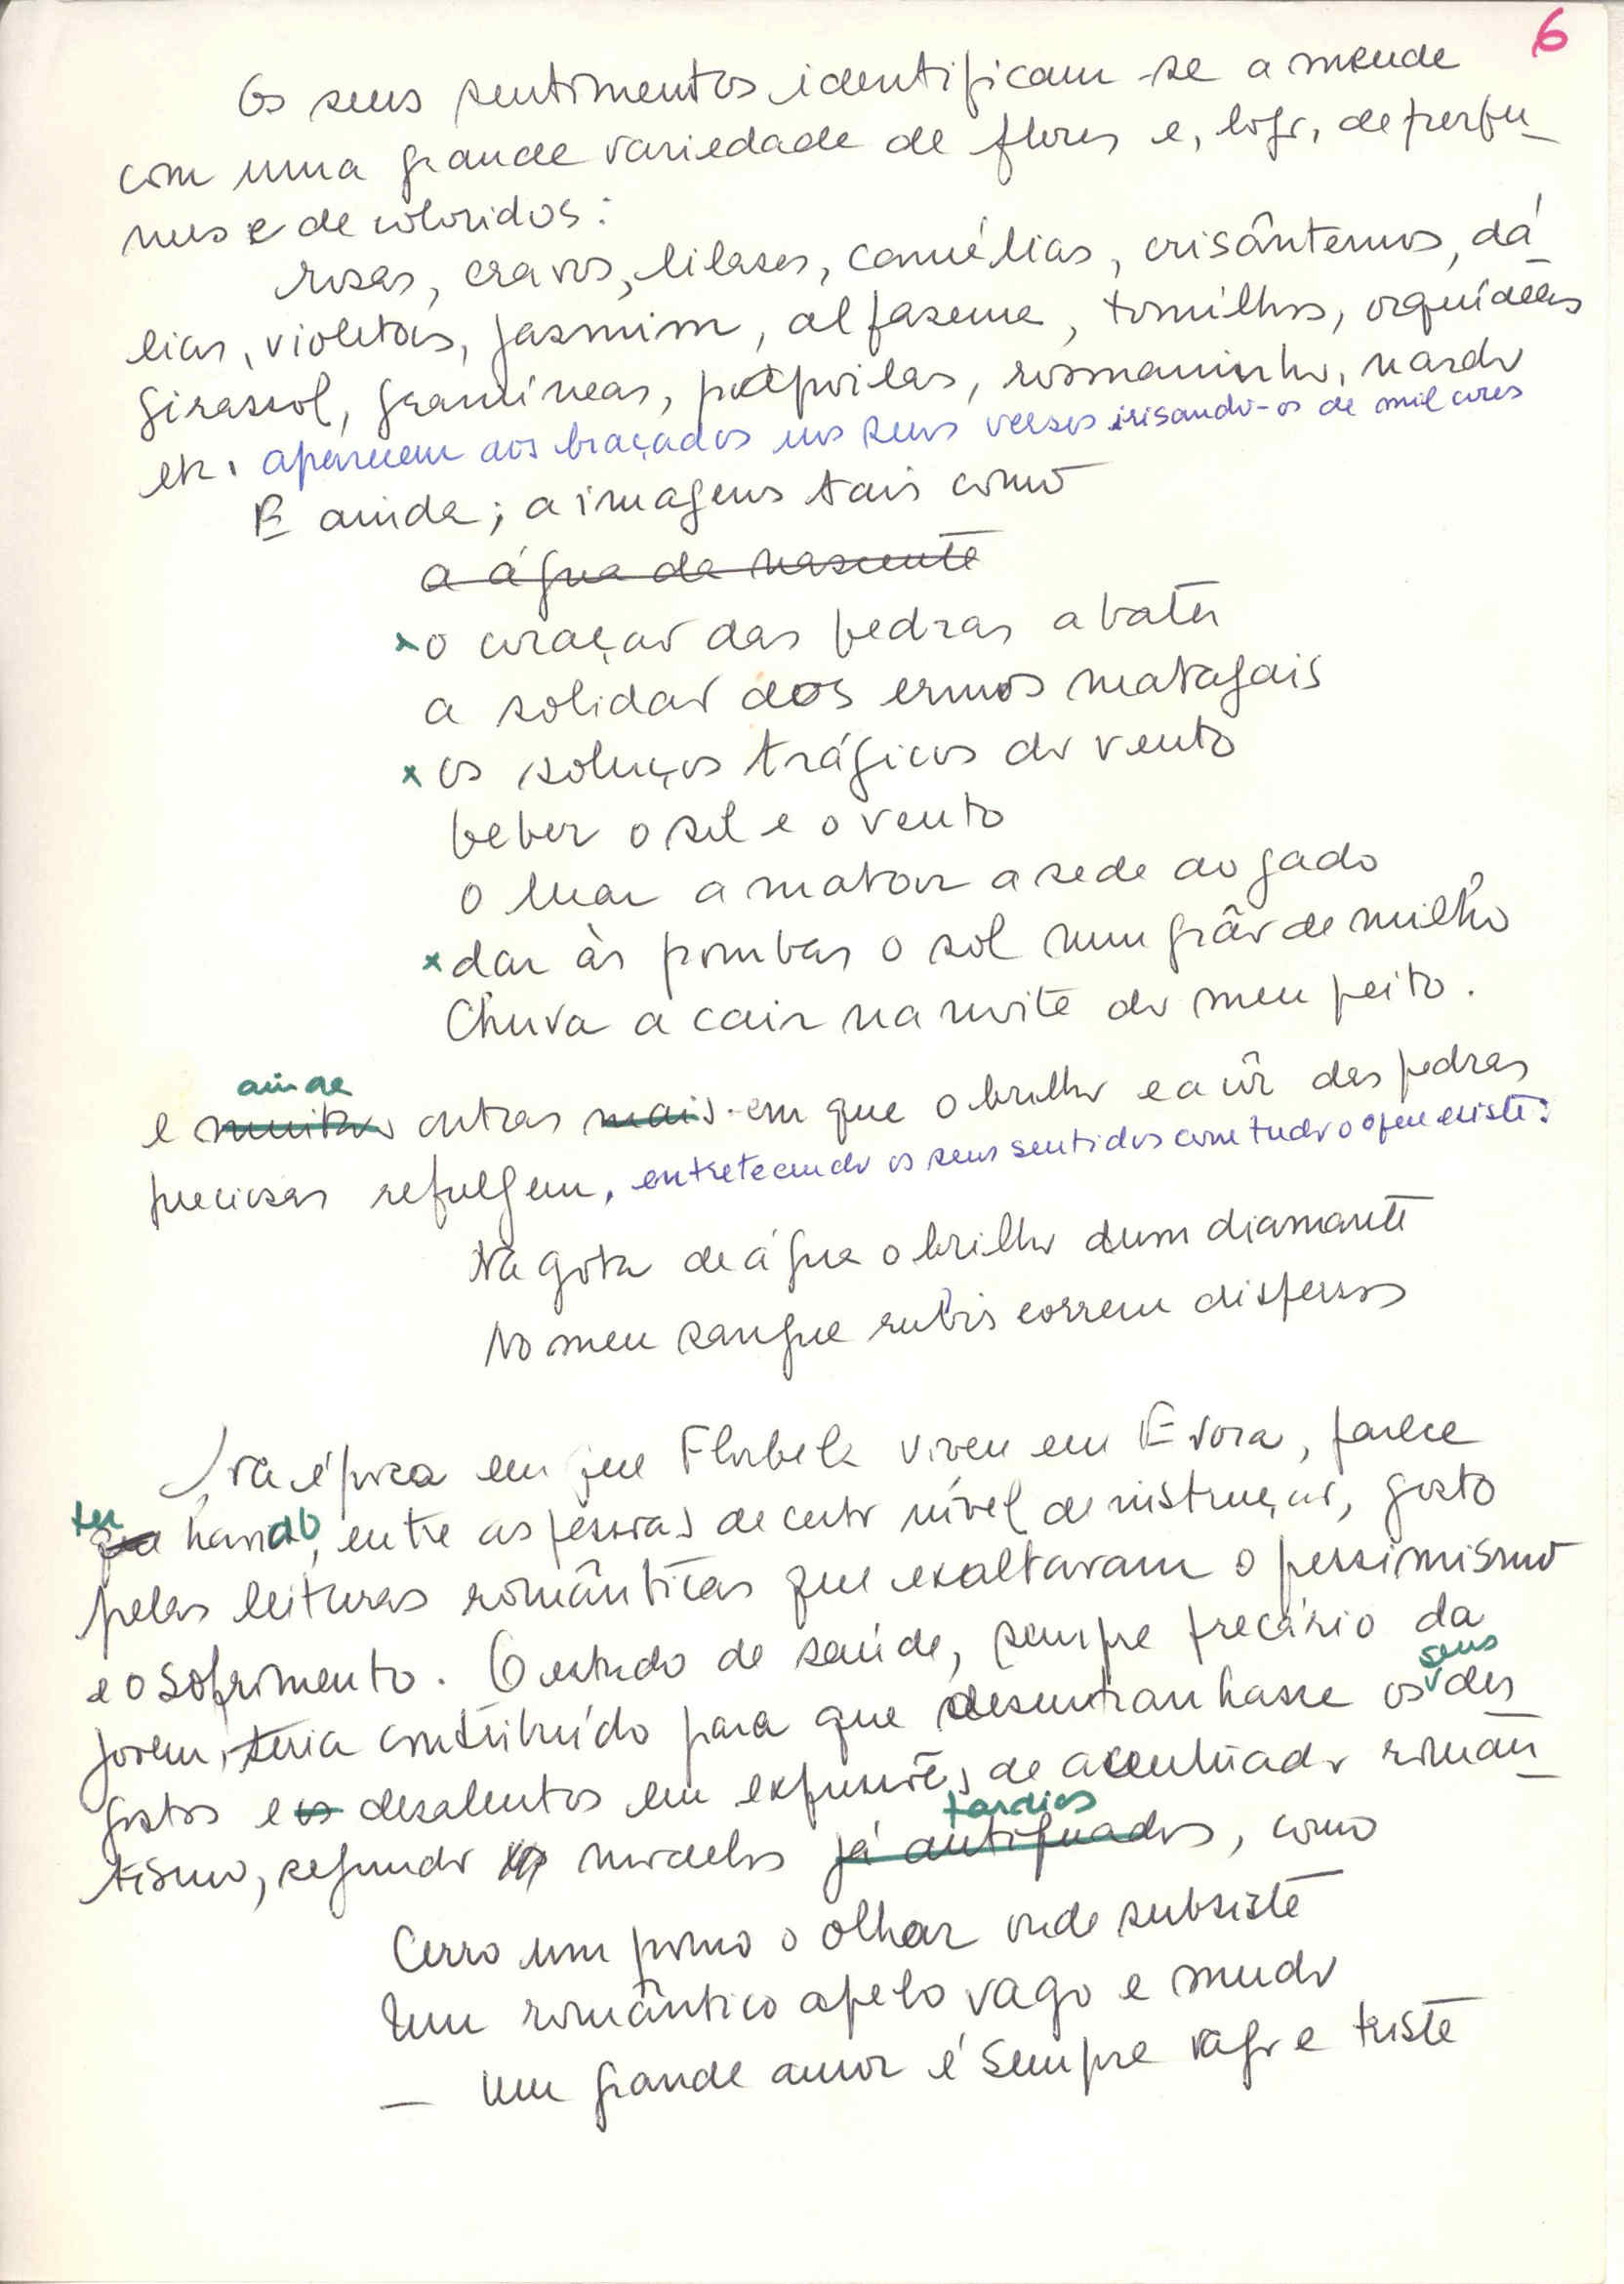 6
Os seus sentimentos identificam-se a meude
com uma grande variedade de flores e, logo, de perfu_
mes e de coloridos:
rosas, cravos, lilases, camélias, crisântemos, dá_
lias, violetas, jasmim, alfazema, tomilhos, orquídeas
girassol, gramíneas, papoilas, rosmaninho, nardo
etc. aparecem aos braçados nos seus versos irisando-os de mil cores
E ainda; a imagens tais como
a água da nascente
x o coração das pedras a bater
a solidão dos ermos matagais
x os soluços trágicos do vento
beber o sol e o vento
o luar a matar a sede ao gado
x dar às pombas o sol num grão de milho
Chuva a cair na noite do meu peito.
ainda
e muitas outras mais em que o brilho e a côr das pedras
preciosas refulgem, entretecendo os seus sentidos com tudo o que existe:
Na gota de água o brilho dum diamante
No meu sangue rubis correm dispersos
Na época em que Florbela viveu em Évora, parece
ter
que havido, entre as pessoas de certo nível de instrução, gosto
pelas leituras românticas que exaltavam o pessimismo
e o sofrimento. O estado de saúde, sempre precário da
seus
jovem, teria contribuído para que desentranhasse os des
gostos e os desalentos em expressões de acentuado român_
tardios
tismo, segundo modelos já antiquados, como
Cerro um pouco o olhar onde subsiste
Um romântico apelo vago e mudo
— Um grande amor é sempre vago e triste